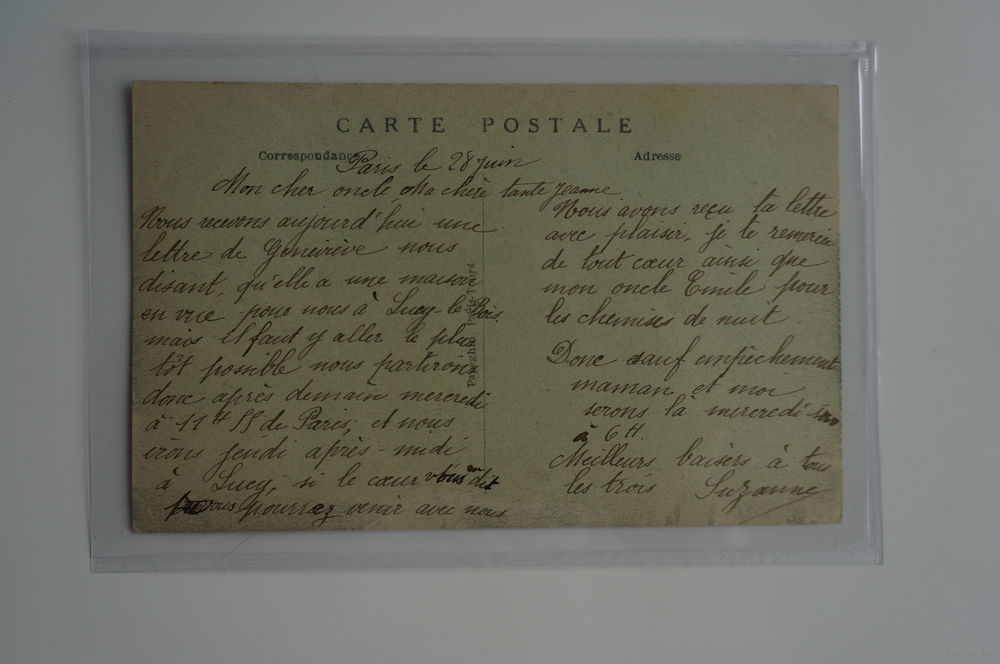 CARTE POSTALE
Correspondance
Adresse
Paris le 28 juin
Mon cher oncle Ma chère tante Jeanne
Nous recevons aujourd'hui une
lettre de Geneviève nous
disant, qu'elle a une maison
en vue pour nous à Lucy-le-Bois.
mais il faut y aller le plus
tôt possible nous partirons
donc après demain mercredi
à 11H 55 de Paris, et nous
irons jeudi après-midi
à Lucy, si le cœur vous en dit
vous pourrez venir avec nous
Nous avons reçu ta lettre
avec plaisir, je te remercie
de tout cœur ainsi que
mon oncle Emile pour
les chemises de nuit
Donc sauf empêchement
maman et moi
serons là mercredi soir
à 6H.
Meilleurs baisers à tous
les trois Suzanne